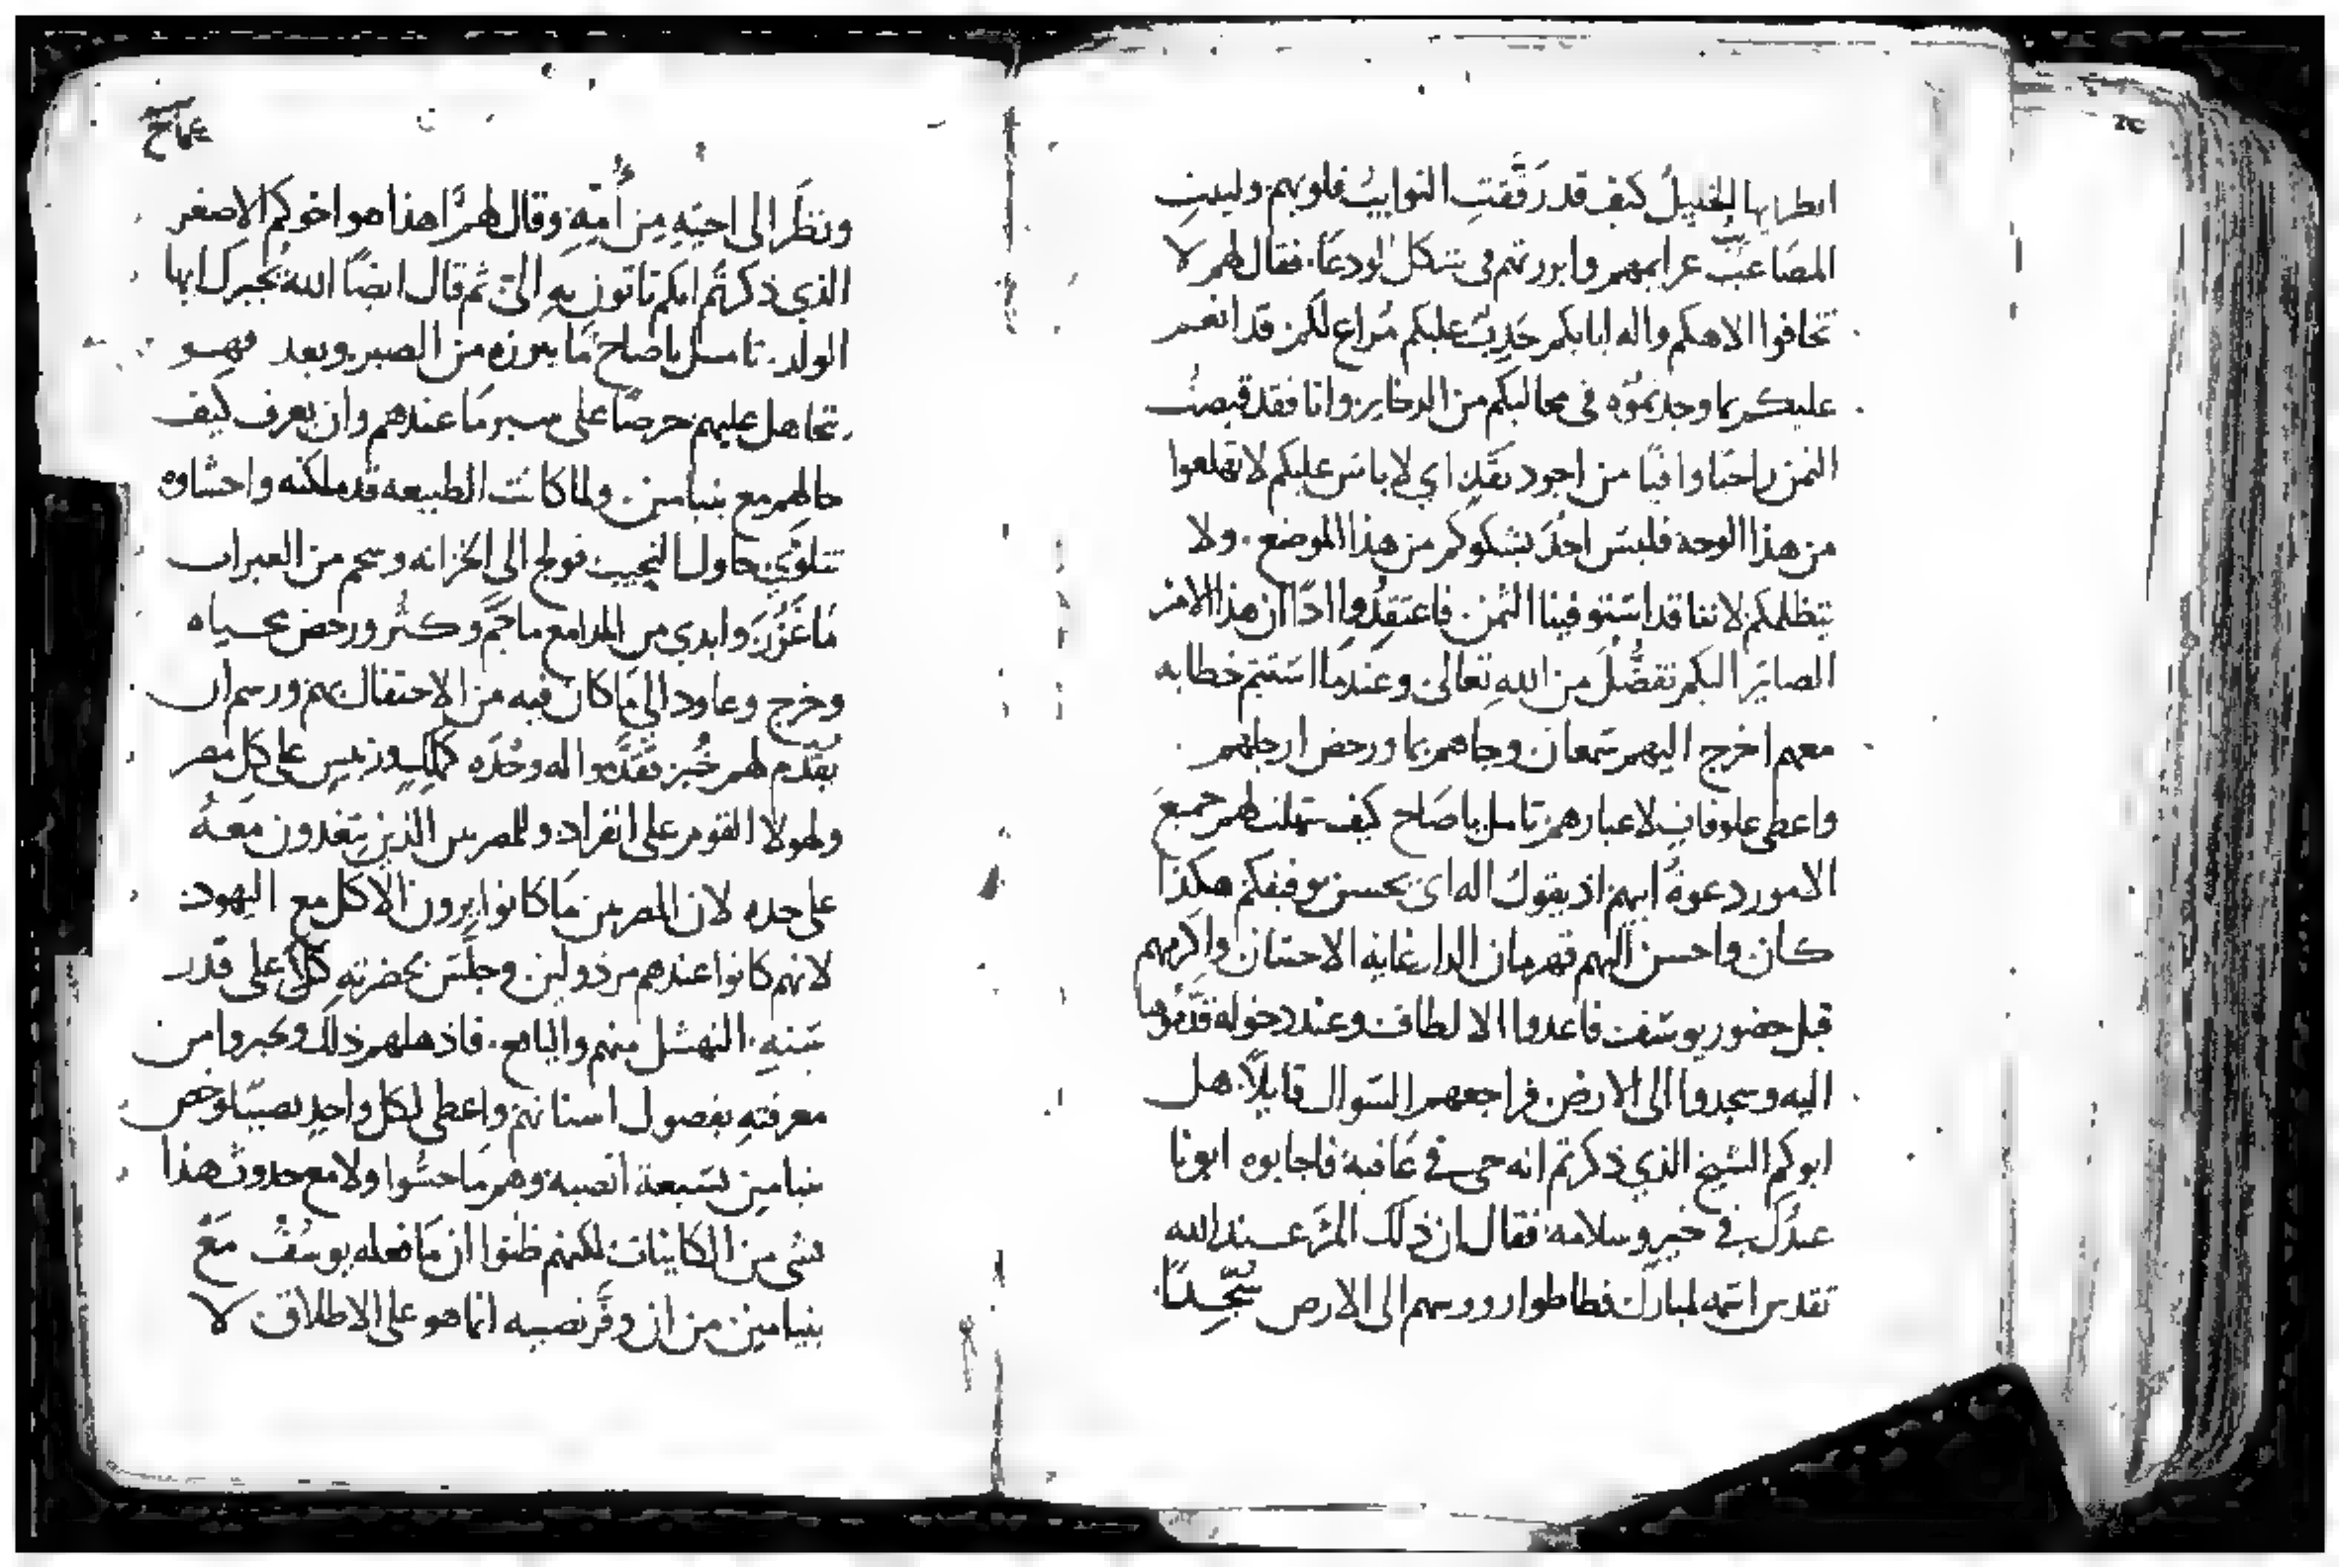 انظر ايها الخليلُ كيف قد رَقَّقتِ النوايبُ قلوبهم ولينتِ
المصَاعبُ عرايمهم وابررتهم في شكل الودعَا. فقال لهم لا
تخافوا الاهكم واله ابايكم حَدِبٌ عليكم مُراعٍ لكم قد انعم
عليكم بما وجدتموُه في محاليكم من الدخاير وانا فقد قبضتُ
الثمن راحبًا وافيًا من اجود نقدٍ اي لا باس عليكم لا تهلعوا
من هذا الوجه فليسَ احدٌ يشكوكم من هذا الموضع. ولا
يتظلمكم لاننا قد استوفينا الثمن. فاعتقِدُوا اذًا ان هذا الامر
الصايَر اليكم تفضُّلٌ من اللهِ تعالى وعندمَا استتم خطابه
معهم اخرج اليهم سَمعان وجاهم بما ورحض ارجلهم
واعطى علوفاتٍ لاعيارهم تامل ياصَاح كيف سهلت لهم جميعَ
الامور دعوةُ ابيهم اذ يقول اله اى يحسن توفيقكم هكذا
كان واحسن اليهم قهرمان الدار غاية الاحسَان واكرمهم
قبل حضور يوسَف فاعدوا الالطاف وعند دخوله قدَّموُها
اليه وسجدوا الى الارض فراجعهم السَوال قايلاً: هل
ابوكم الشيخ الذي ذكرتم انه حي في عَافية فاجابوه ابونا
عبدُك في خيرٍ وسلامه: فقال ان ذلك المرَ عند الله
تقدس اسمَه لمبارك فطاطوا رووسهم الى الارض سُجَّدًا.
ونظَر الى اخيّهِ مِن اُمِّهِ وقال لهمْ اهذا هو اخوكم الاصغر
الذي ذكرتُم انكم تاتون بهِ اليَّ ثم قال ايضًا اللهُ يُجيرك ايها
الولد. تامل ياصاح مَا يبرزه من الصبر وبعد فهو
يتجاهل عليهم حرصًا على سبر مَا عندهم وان يعرف كيف
حالهم مع بنيامين. ولما كانت الطبيعه قد ملكته واحشاوه
تتلوَّى حاول النحيب فولج الى الخزانه وسجم من العبرات
مَا غَزُرَ وابدى من المدامع ما جَمَّ وكثُر ورحض محياه
وخرج وعاود الى مَا كان فيه من الاحتفال بهم ورسم ان
يقدَّم لهم خُبز فقدَّموا له وحْدَه كملكٍ وريسٍ على كل مصر
ولهولا القوم على انفراد وللمصريين الذين يتغدون معَهُ
على حده لان المصريين مَا كانوا يرون الاكل مع اليهود:
لانهم كانوا عندهم مرذولين وجلسَ بحضرتهِ كلٌ على قدر
سَنهِ: النهشل منهم واليافع. فاذهلهم ذلك وتحيروا من
معرفتهِ بفصول اسنانهم واعطى لكل واحدٍ نصيبًا وخص
بنيامين بسَبعة انصبه وهم مَا حسُّوا ولا مع حدوث هذا
بشي من الكاينات: لكنهم ظنوا ان مَا فعله يوسُفُ مَعَ
بنيامين من ان وفَّر نصيبه انما هو على الاطلاق لا